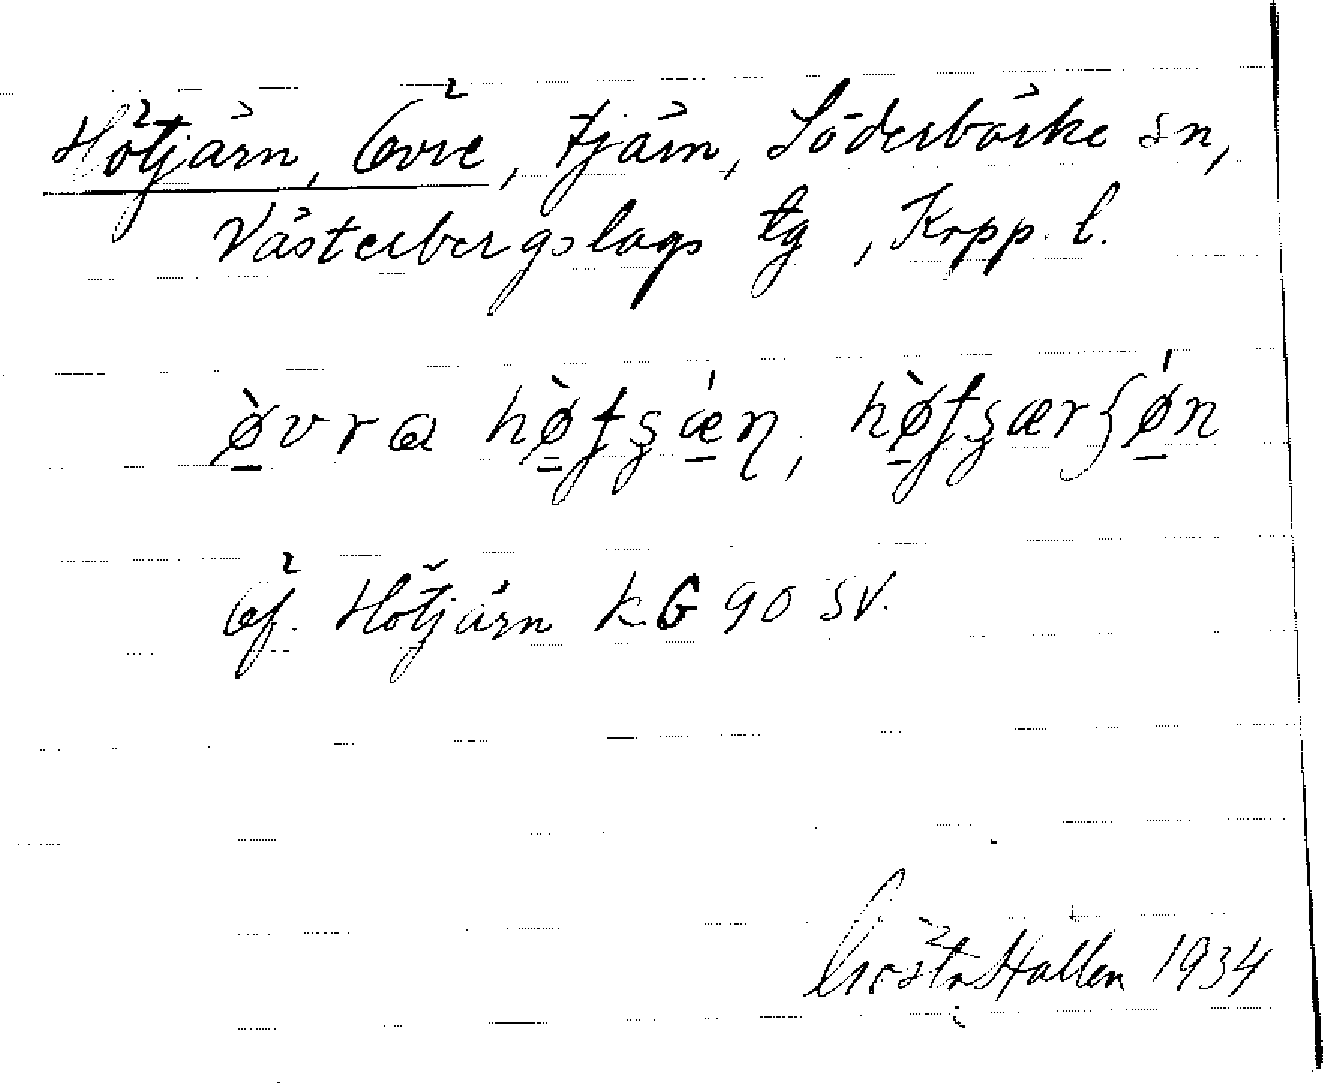 Hötjärn, Övre, tjärn, Söderbärke sn,
Västerbergslags tg, Kopp. l.
ø̀vra hø̀tʂǽn, hø̀tʂærʃǿn
Öf. Hötjärn k G 90 SV.
Gösta Hallen 1934